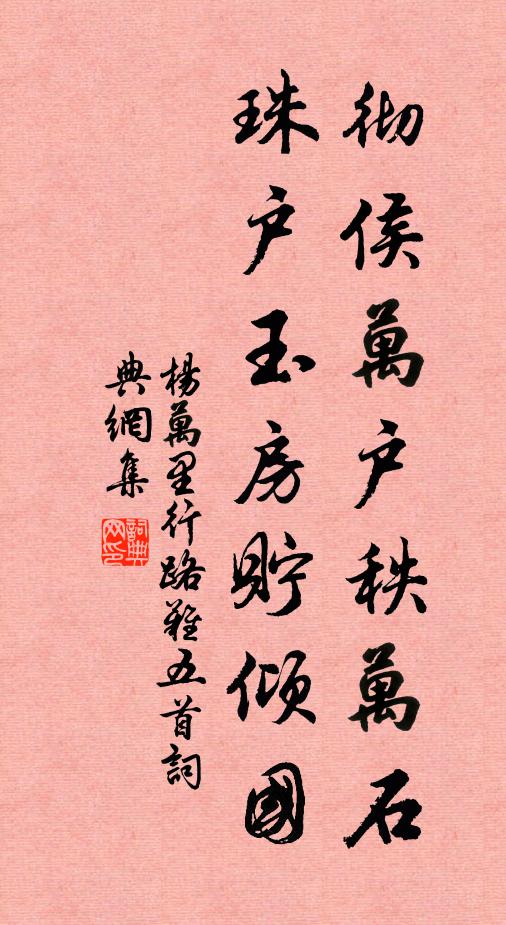 彻侯萬户秩萬石
珠户玉房貯傾國
楊萬里行路難五首詞
典網集
詞典网印